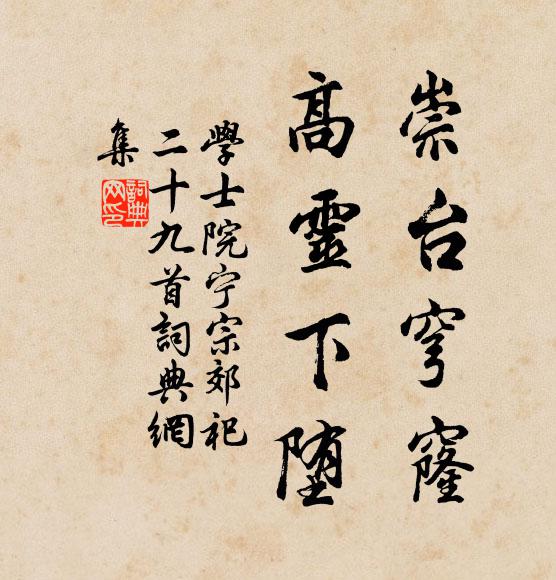 崇台穹窿
高靈下堕
學士院宁宗郊祀
二十九首詞典網
集
詞典网印